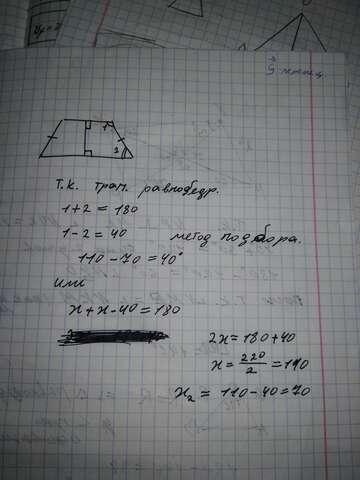 1
2
Т.К. трап. равнобедр.
1+2 = 180
1-2 = 40 метод подбора.
110-70=40°
или
x+x-40=180
2x=180+40
x=220/2=110
x₂ = 110-40=70